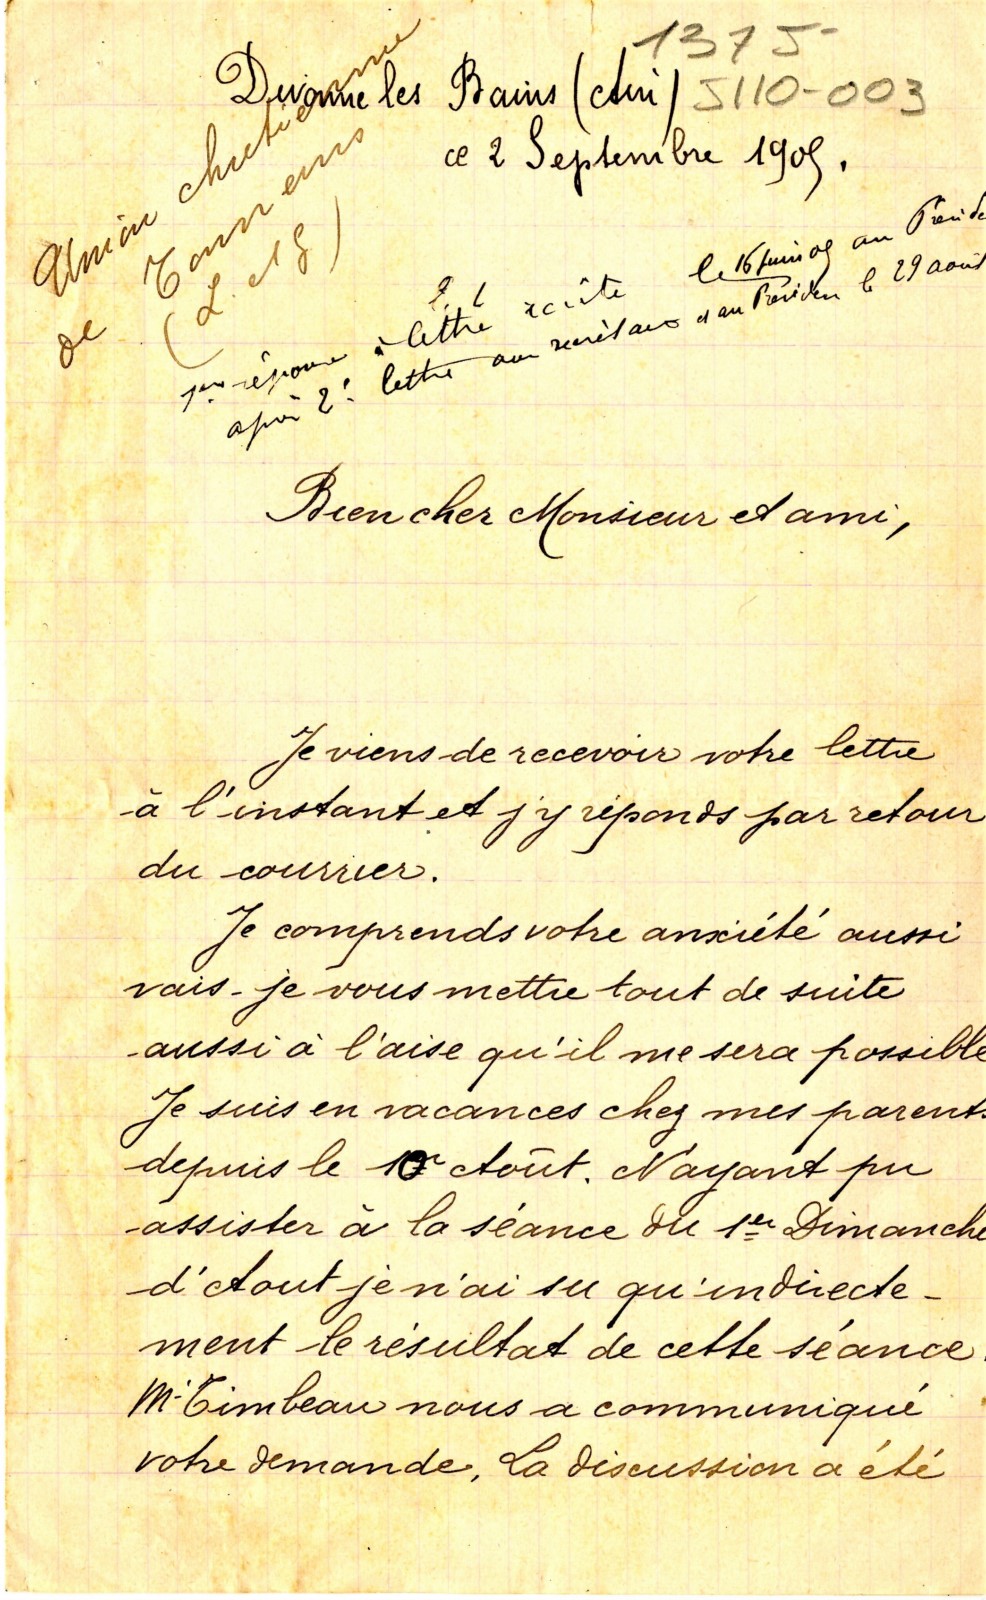 1375
Divonne les Bains (Ain) J110-003
ce 2 Septembre 1905.
Union chretienne
de Tonneins
(L. et G)
1ère réponse à lettre écrite le 16 juin 05 au Préside
après 2e lettre au secrétaire et au Présiden le 29 août
Bien cher Monsieur et ami,
Je viens de recevoir votre lettre
à l'instant et j'y réponds par retour
du courrier.
Je comprends votre anxiété aussi
vais-je vous mettre tout de suite
aussi à l'aise qu'il me sera possible
Je suis en vacances chez mes parents
depuis le Août. N'ayant pu
assister à la séance du 1er Dimanche
d'Aout je n'ai su qu'indirecte-
ment le résultat de cette séance.
Mr Timbeau nous a communiqué
votre demande. La discussion a été